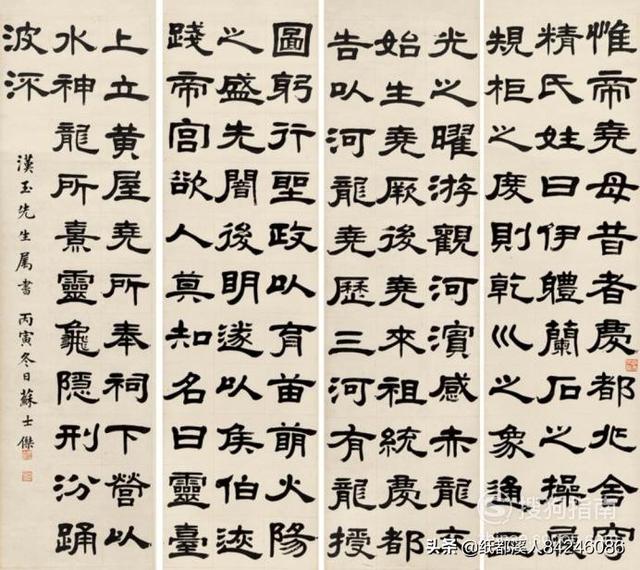 惟帝堯母昔者慶都兆舍穹
精氏姓曰伊體蘭石之操履
規柜之度則乾巛之象通
光之曜游觀河濱感赤龍交
始生堯厥後堯來祖統慶都
告以河龍堯歷三河有龍授
圖躬行聖政以有苗萌火陽
之盛先闇後明遂以侯伯迹
踐帝宮欲人莫知名曰靈臺
上立黃屋堯所奉祠下營以
水神龍所熹靈龜隱刑汾踊
波深
漢玉先生属書 丙寅冬日蘇士傑
搜狗指南
头条 @纸都溪人84246086